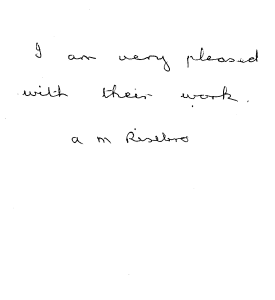 I am very pleased
with their work.
a m Risebro